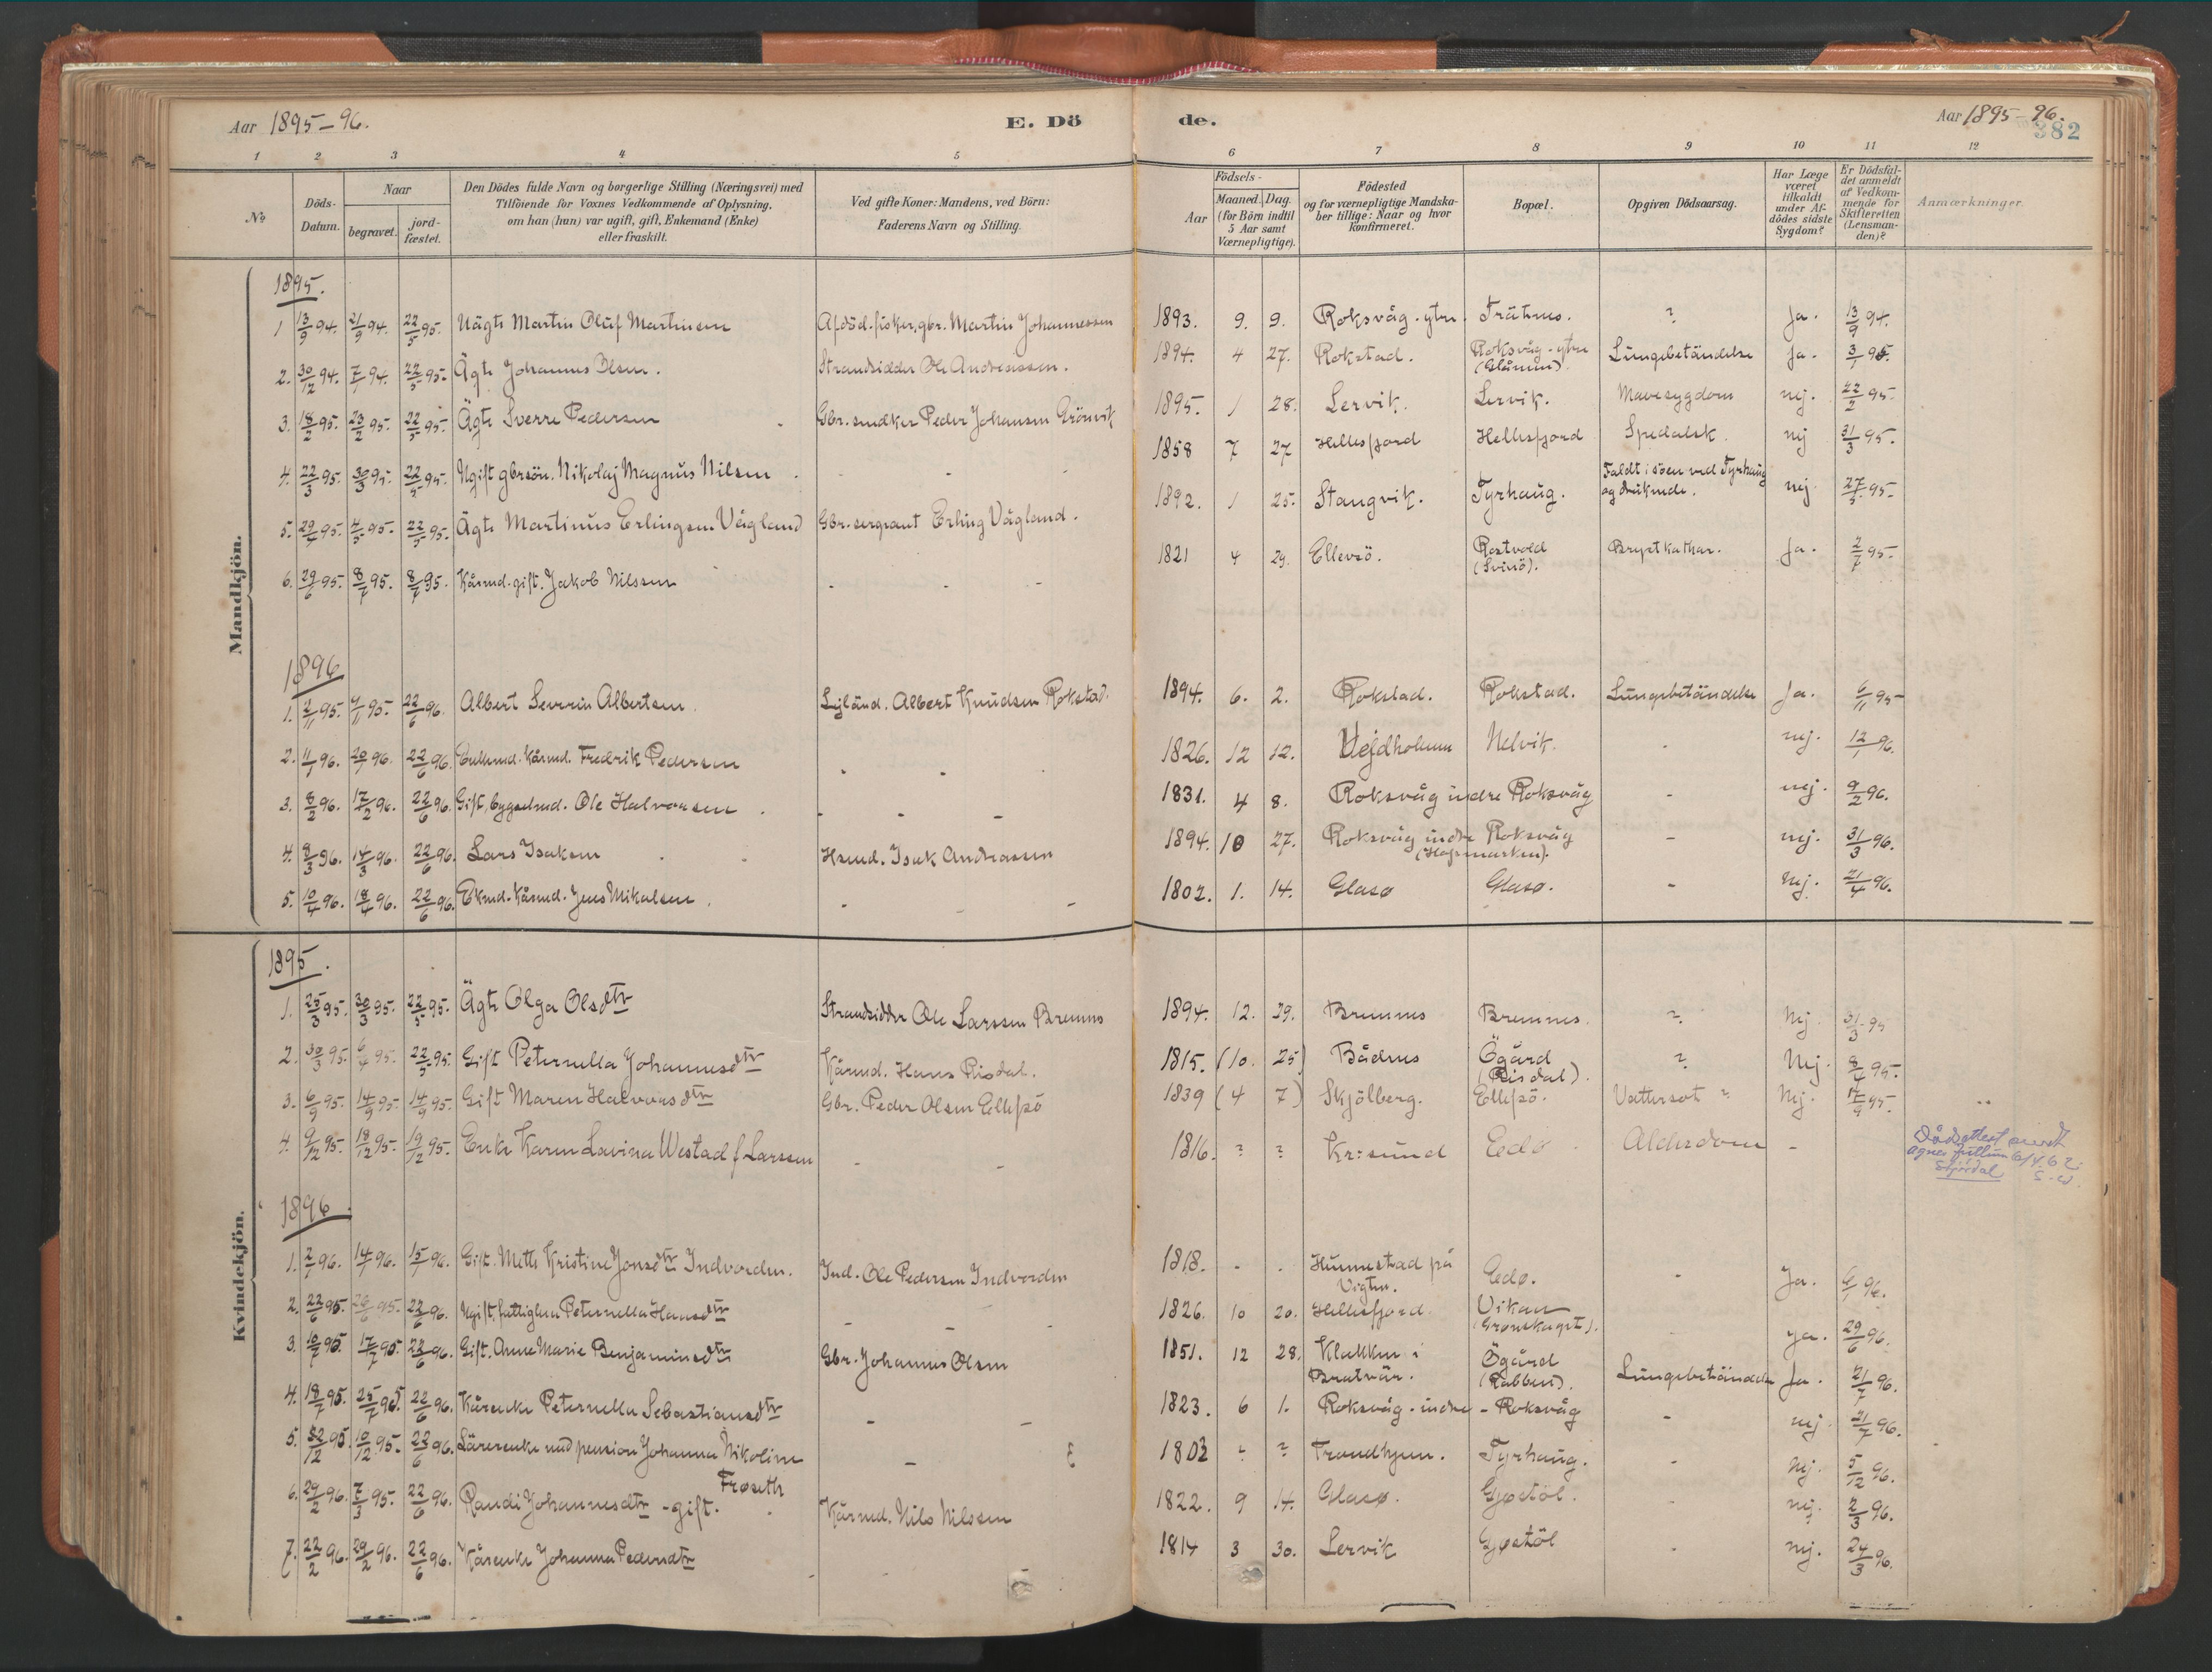 Aar 1895-96.
E. Dö
de.
Aar 1895-96.
382
1 2 3 4 5 6 7 8 9 10 11 12
No
Döds-Datum.
Naar
begravet.
jord-fæstet.
Den Dödes fulde Navn og borgerlige Stilling (Næringsvei) med
Tilföiende for Voxnes Vedkommende af Oplysning,
om han (hun) var ugift, gift, Enkemand (Enke)
eller fraskilt.
Ved gifte Koner: Mandens, ved Börn:
Faderens Navn og Stilling.
Födsels-
Aar
Maaned. Dag.
(for Börn indtil
5 Aar samt
Værnepligtige).
Födested
og for værnepligtige Mandska-
ber tillige: Naar og hvor
konfirmeret.
Bopæl.
Opgiven Dödsaarsag.
Har Læge
været
tilkaldt
under Af-
dödes sidste
Sygdom?
Er Dödsfal-
det anmeldt
af Vedkom-
mende for
Skifteretten
(Lensman-
den)?
Anmærkninger.
Mandkjön.
1895.
1 13/9 94. 21/9 94. 22/5 95. Uägte Martin Oluf Martinsen Afdöd. fisker, gbr. Martin Johannessen 1893. 9. 9. Roksvåg - ytre. Trähus. ? Ja. 13/9 94.
2. 30/12 94. 7/1 94. 22/5 95. Ägte Johannes Olsen. Strandsidder Ole Andreassen. 1894. 4 27. Rokstad. Roksvåg - ytre Lungebetändelse Ja. 3/1 95.
3. 18/2 95. 23/2 95. 22/5 95. Ägte Sverre Pedersen Gbr. snedker Peder Johansen Grönvik 1895. 1 28. Lervik. Lervik. Mavesygdom nej. 22/2 95.
4. 22/3 95. 30/3 95. 22/5 95. Ugift gbrsön. Nikolaj Magnus Nilsen - - 1858 7 27 Hellesfjord Hellesfjord Spedalsk. nej 31/3 95.
5. 29/4 95. 4/5 95. 22/5 95. Ägte Martinus Erlingsen Vågland Gbr. sergeant Erling Vågland. 1892. 1 25. Stangvik. Tyrhaug. Faldt i söen ved Tyrhaug
og druknede. nej. 27/5 95.
6. 29/6 95. 8/7 95. 8/7 95. Kårmd. gift. Jakob Nilssen - - - 1821 4 29. Ellevsö. Rostvold
(Svinö). Brystkathar. Ja. 2/7 95.
1896
1. 2/11 95. 4/11 95. 22/6 96. Albert Severin Albertsen. Albert Knudsen Rokstad. 1894. 6. 2. Rokstad. Rokstad. Lungebetändelse Ja. 6/11 95
2. 11/1 96. 20/1 96. 22/6 96. Enkemd. Kårmd. Fredrik Pedersen - - 1826. 12 12. Vejdholmen Nelvik. - nej. 12/1 96.
3. 8/2 96. 17/2 96. 22/6 96. Gift, bygselmd. Ole Halvorsen. - - - 1831. 4 8. Roksvåg indre Roksvåg - nej. 9/2 96.
4. 8/3 96. 14/3 96. 22/6 96. Lars Isaksen Hsmd. Isak Andreassen 1894. 10 27. Roksvåg indre Roksvåg
- nej. 31/3 96.
5. 10/4 96. 18/4 96. 22/6 96. Ekmd. Kårmd. Jens Mikalsen. - - - 1802. 1. 14. Glasø Glasø. - Nej. 21/4 96.
Kvindekjön.
1895.
1. 25/3 95. 30/3 95. 22/5 95. Ägte Olga Olsdtr Strandsidder Ole Larssen Bremnes 1894. 12. 29. Bremnes Bremnes. ? Nej. 31/3 95
2. 30/3 95. 6/4 95. 22/5 95. Gift Peternella Johannesdtr Kårmd. Hans Risdal. 1815. (10. 25) Bådnes Ögård
(Risdal). ? Nej. 8/4 95.
3. 6/9 95. 14/9 95. 14/9 95. Gift Maren Halvorsdtr Gbr. Peder Olsen Ellefsö 1839 (4 7) Skjölberg. Ellefsö. Vattersot ? Nej. 17/9 95.
4. 9/12 95. 18/12 95. 19/12 95. Enke Karen Lavina Westad f. Larssen - - 1816. ? ? Kr:sund Edø. Alderdom -
Dödsattest
6/4 62.
Stjördal
1896.
1. 2/1 96. 14/1 96. 15/1 96. Gift. Mette Kristine Jonsdtr Indvorden. Ind. Ole Pedersen Indvorden 1818. - - Hunnestad på
Vigten. Edø. - Ja. 6/1 96.
2. 22/6 95. 26/6 95. 22/6 96. Ugift, fattiglem Peternella Hansdtr - - - 1826. 10 20. Hellesfjord. Vikan
. - Ja. 29/6 96.
3. 10/7 95. 17/7 95. 22/6 96. Gift. Anne Marie Benjaminsdtr Gbr. Johannes Olsen 1851. 12 28. Klakken i
Bratvär. Ögård
(Rabben). Lungebetändelse Ja. 21/7 96.
4. 18/7 95. 25/7 95. 22/6 96. Kårenke Peternella Sebastiansdtr - - 1823. 6 1. Roksvåg - indre - Roksvåg - nej. 21/7 96.
5. 10/12 95. 22/6 96. Lärerenke med pension Johanna Nikoline
Frøseth - 1803 ? ? Trondhjem. Tyrhaug. - Nej. 5/12 96.
6. 29/2 96. 7/3 95. 22/6 96. Randi Johannesdtr - gift. Kårmd. Nils Nilssen 1822. 9 14. Glasø. Gjøstöl. - nej. 2/3 96.
7. 22/2 96. 29/2 96. 22/6 96. Kårenke Johanna Pedersdtr - - 1814 3 30. Lervik Gjøstöl - nej. 24/3 96.